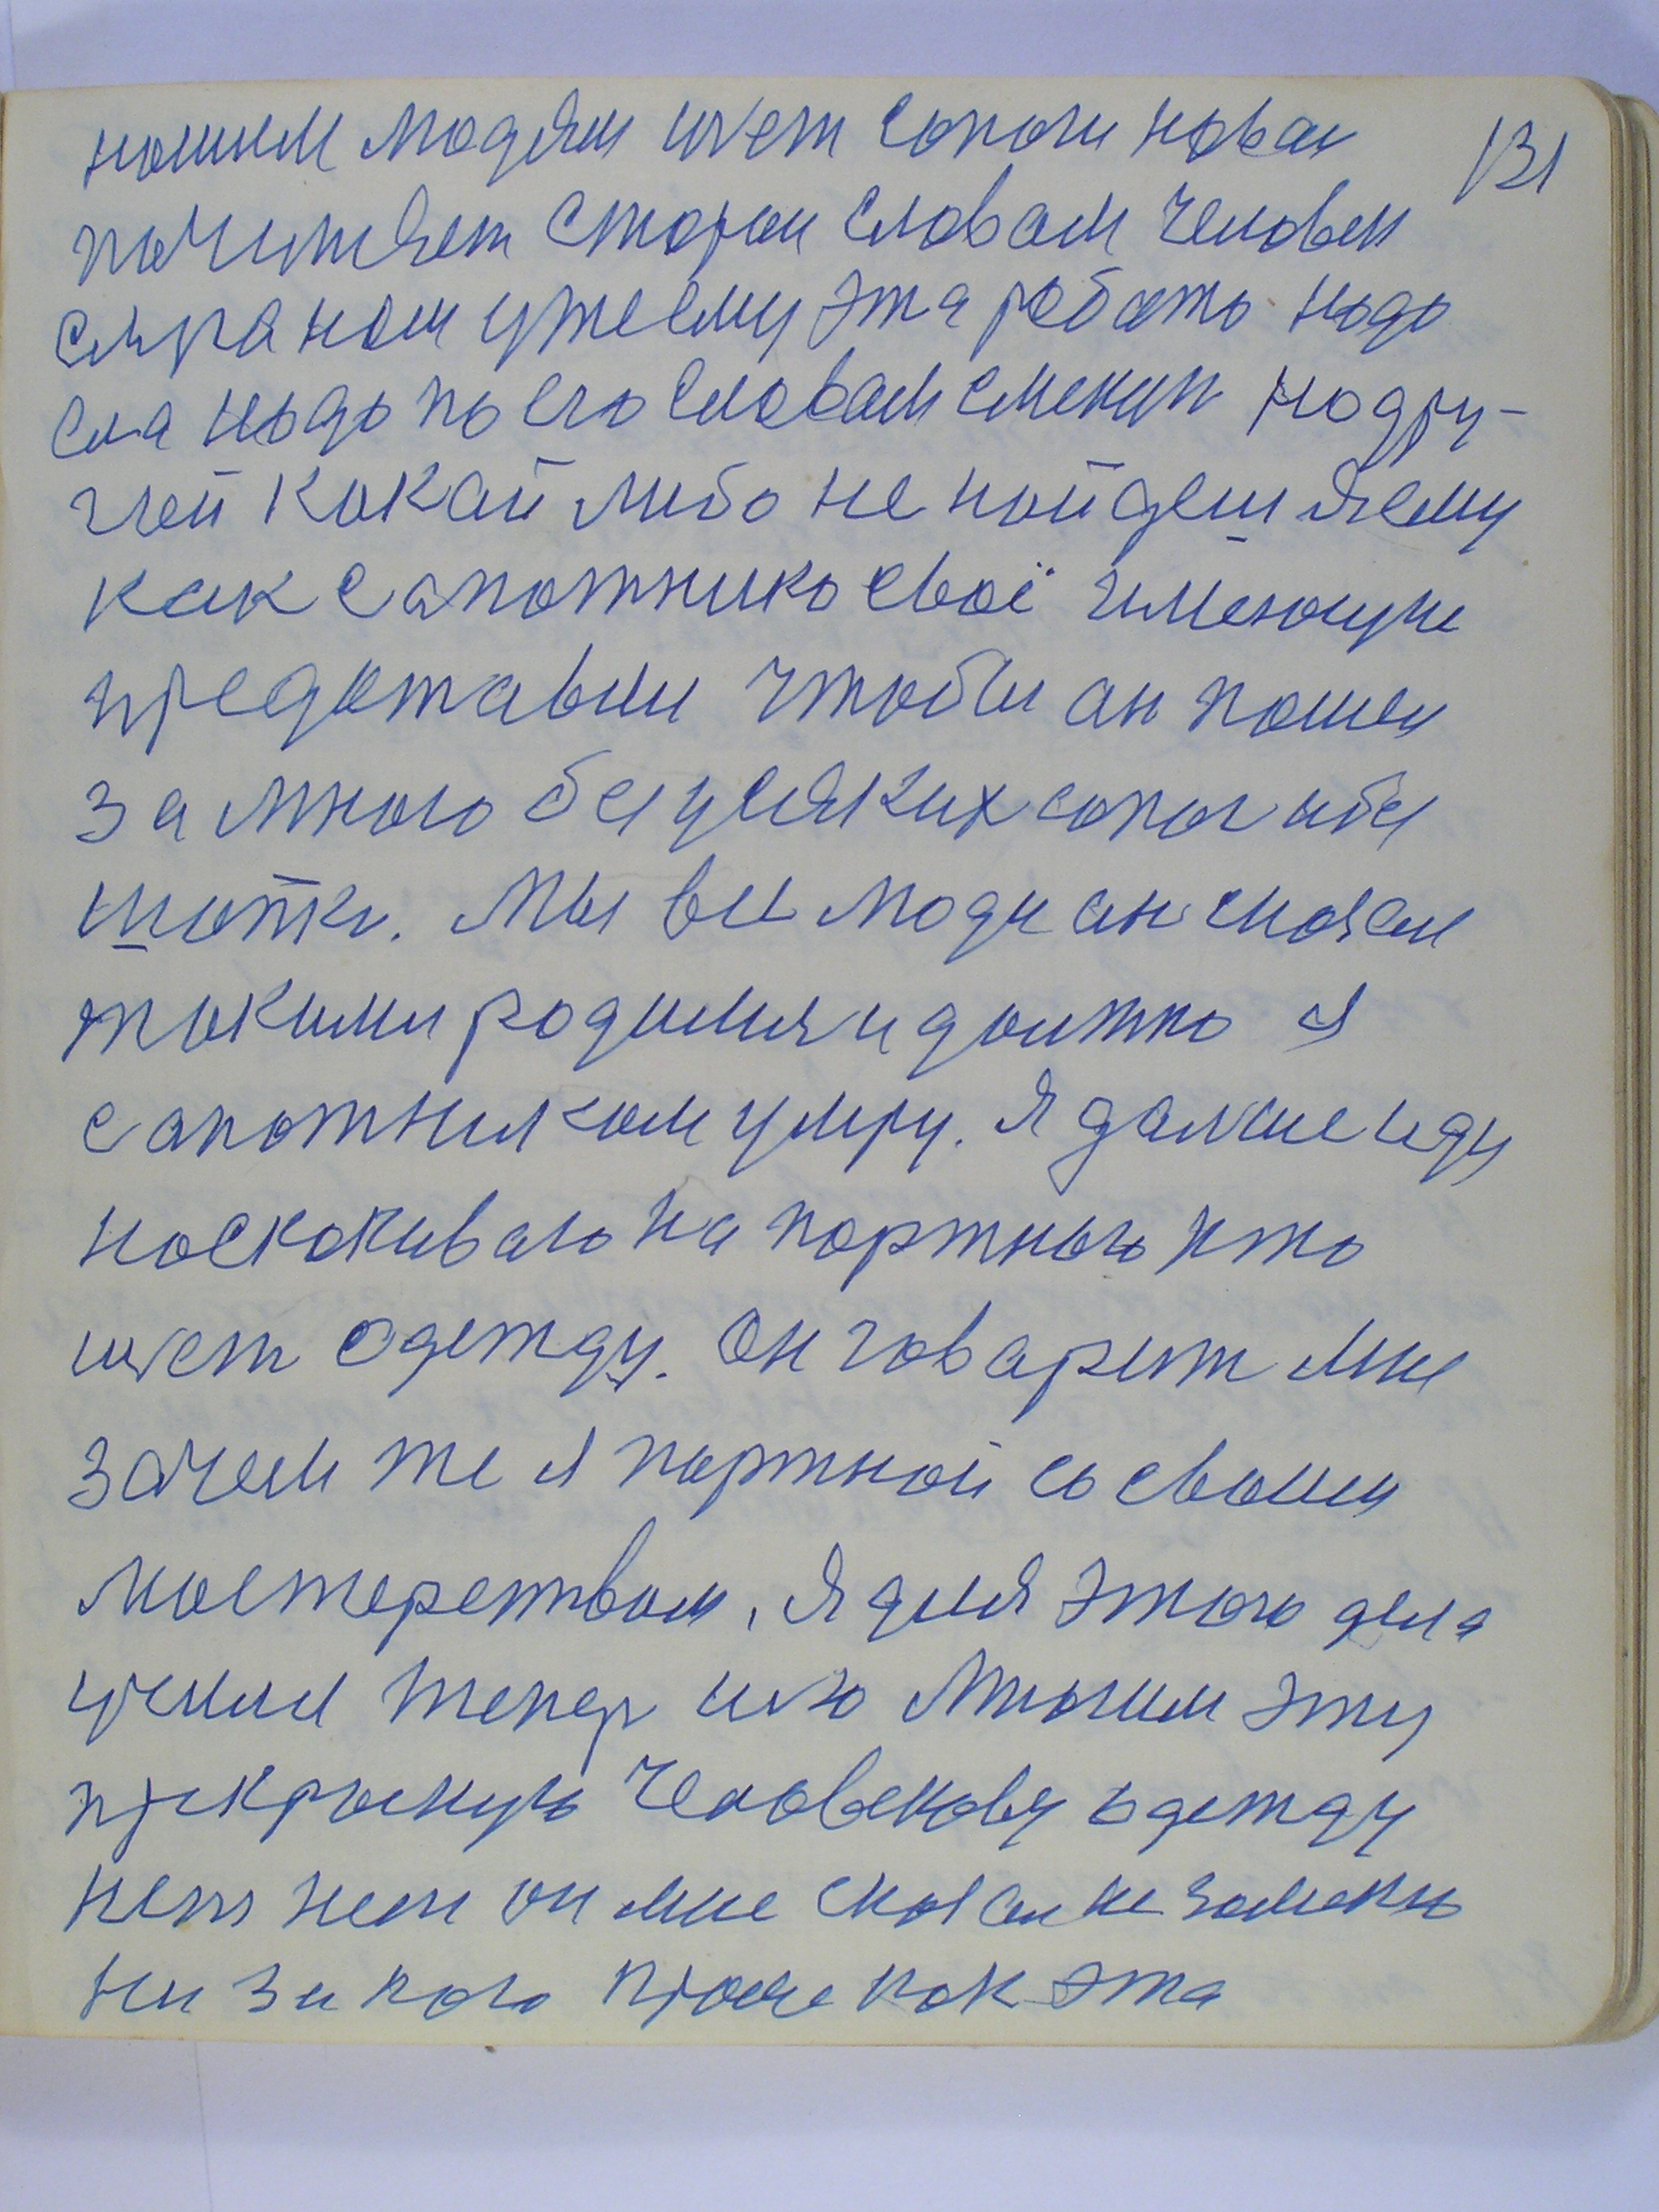 нашим людям шьет сапоги новаи 131
починяет стараи словам человек
стракам уже ему эта работа надо
ела надо по его словам сменил на дру-
гой какай либо не найдеш я ему
как сапожнику своё имеющие
предоставил чтобы ан пошел
за мною без усяких сапог и без
шапки. Мы все люди ан сказал
такими родилися и должно я
сапожником умру. Я дальше иду
наскакиваю на портного кто
шьет одежду. Он говарит мне
зачем же я портной со своим
мастерством. Я для этого дела
учился тепер шью многим эту
прекрасную человекову одежду
нет нет он мне сказал не заменю
ни за кого проче как эта